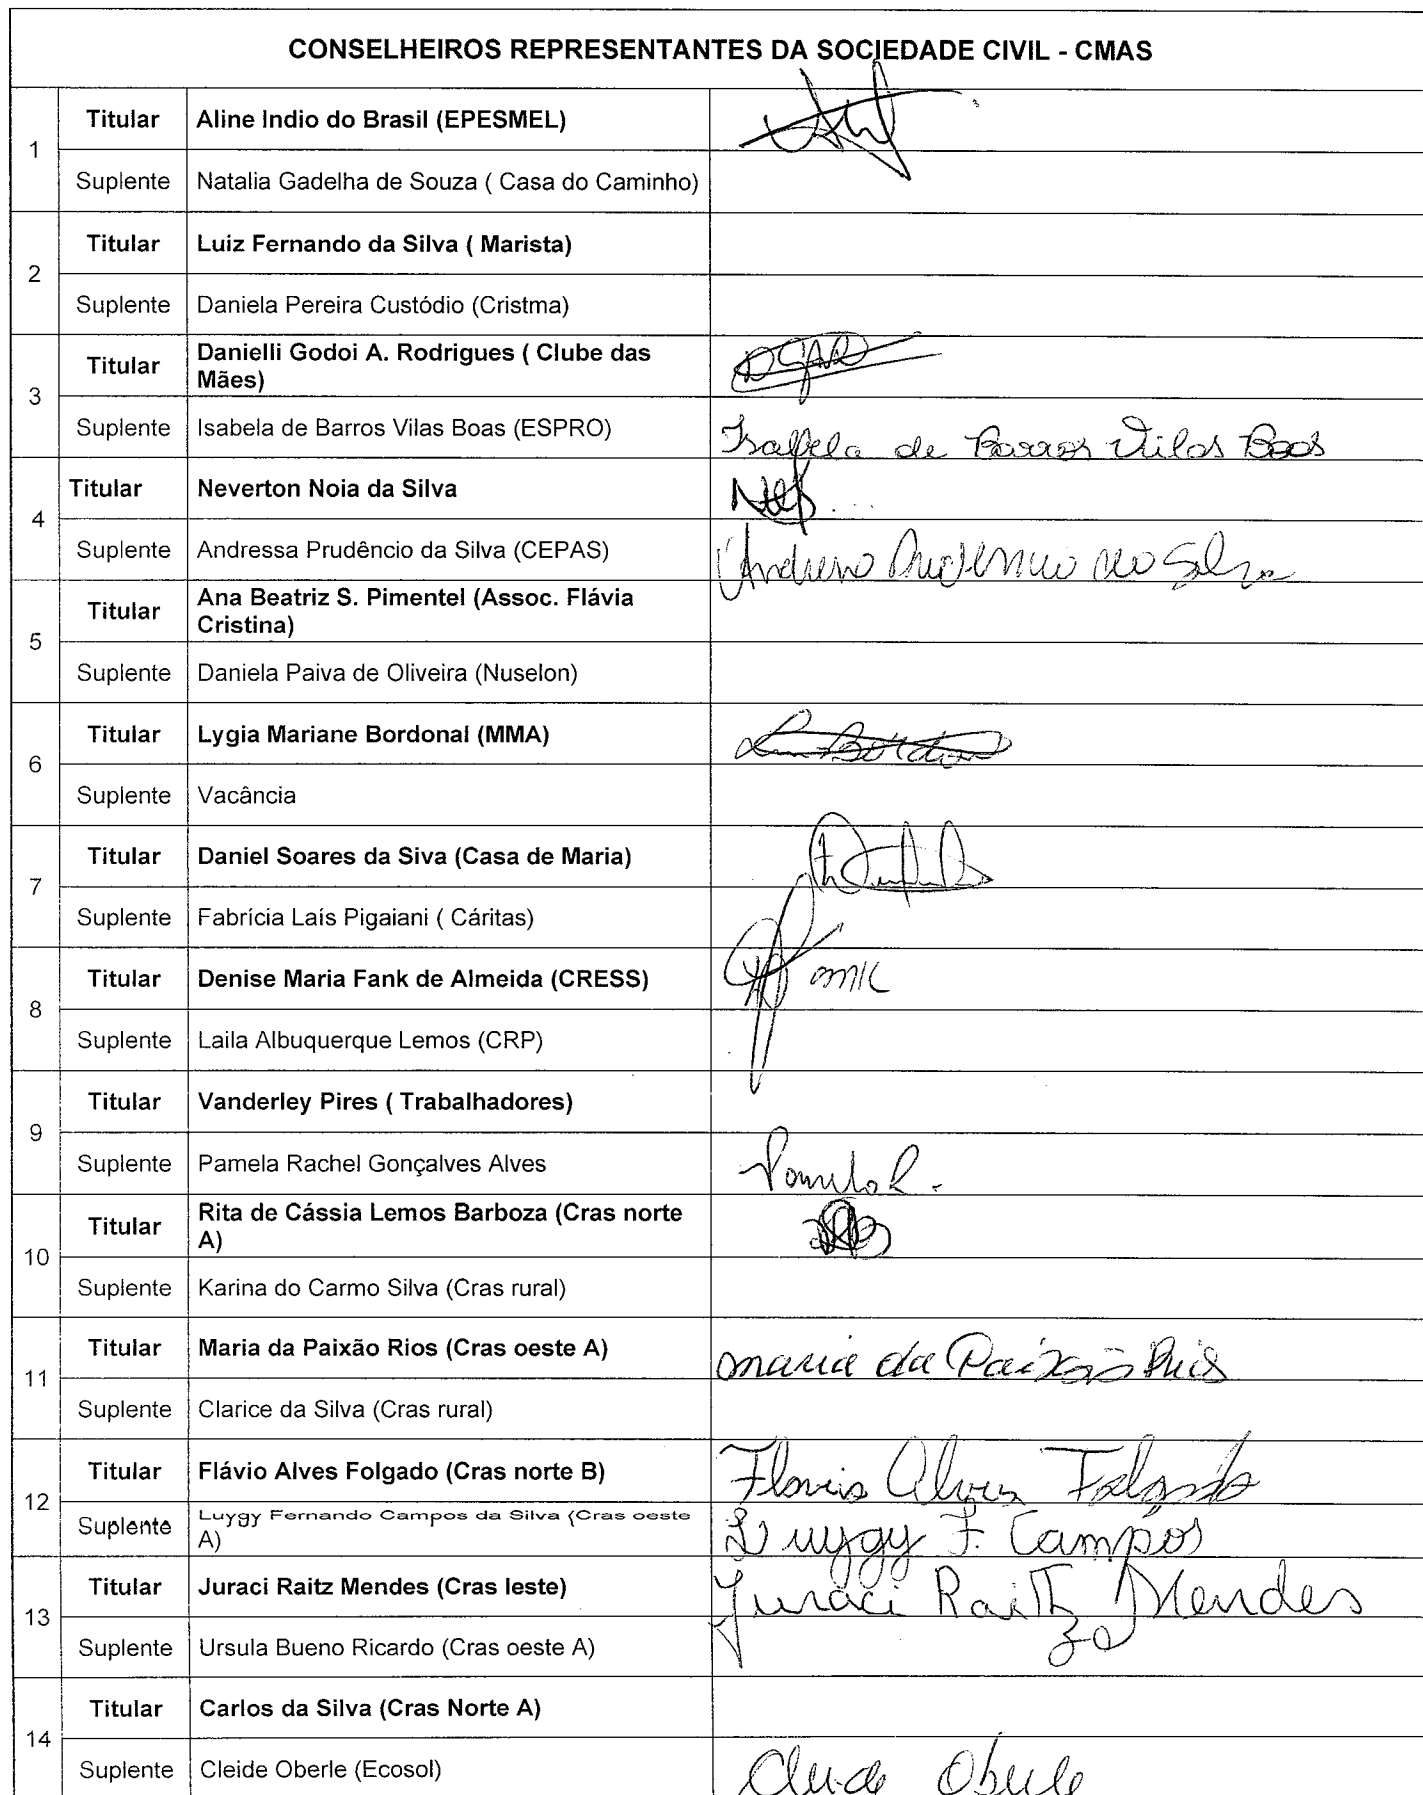 CONSELHEIROS REPRESENTANTES DA SOCIEDADE CIVIL - CMAS
1
Titular Aline Indio do Brasil (EPESMEL)
Suplente Natalia Gadelha de Souza ( Casa do Caminho)
2
Titular Luiz Fernando da Silva ( Marista)
Suplente Daniela Pereira Custódio (Cristma)
3
Titular Danielli Godoi A. Rodrigues ( Clube das
Mães)
DGAR
Suplente Isabela de Barros Vilas Boas (ESPRO) Isabela de Barros Vilas Boas
4
Titular Neverton Noia da Silva
Suplente Andressa Prudêncio da Silva (CEPAS) Andressa Prudencio da Silva
5
Titular Ana Beatriz S. Pimentel (Assoc. Flávia
Cristina)
Suplente Daniela Paiva de Oliveira (Nuselon)
6
Titular Lygia Mariane Bordonal (MMA)
Suplente Vacância
7
Titular Daniel Soares da Siva (Casa de Maria)
Suplente Fabrícia Laís Pigaiani ( Cáritas)
8
Titular Denise Maria Fank de Almeida (CRESS)
Suplente Laila Albuquerque Lemos (CRP)
9
Titular Vanderley Pires ( Trabalhadores)
Suplente Pamela Rachel Gonçalves Alves Pamela R.
10
Titular Rita de Cássia Lemos Barboza (Cras norte
A)
Suplente Karina do Carmo Silva (Cras rural)
11
Titular Maria da Paixão Rios (Cras oeste A) maria da Paixão Rios
Suplente Clarice da Silva (Cras rural)
12
Titular Flávio Alves Folgado (Cras norte B) Flavio Alves Folgado
Suplente Luygy Fernando Campos da Silva (Cras oeste
A)
Luygy F. Campos
13
Titular Juraci Raitz Mendes (Cras leste) Juraci Raitz Mendes
Suplente Ursula Bueno Ricardo (Cras oeste A)
14
Titular Carlos da Silva (Cras Norte A)
Suplente Cleide Oberle (Ecosol) Cleide Oberle